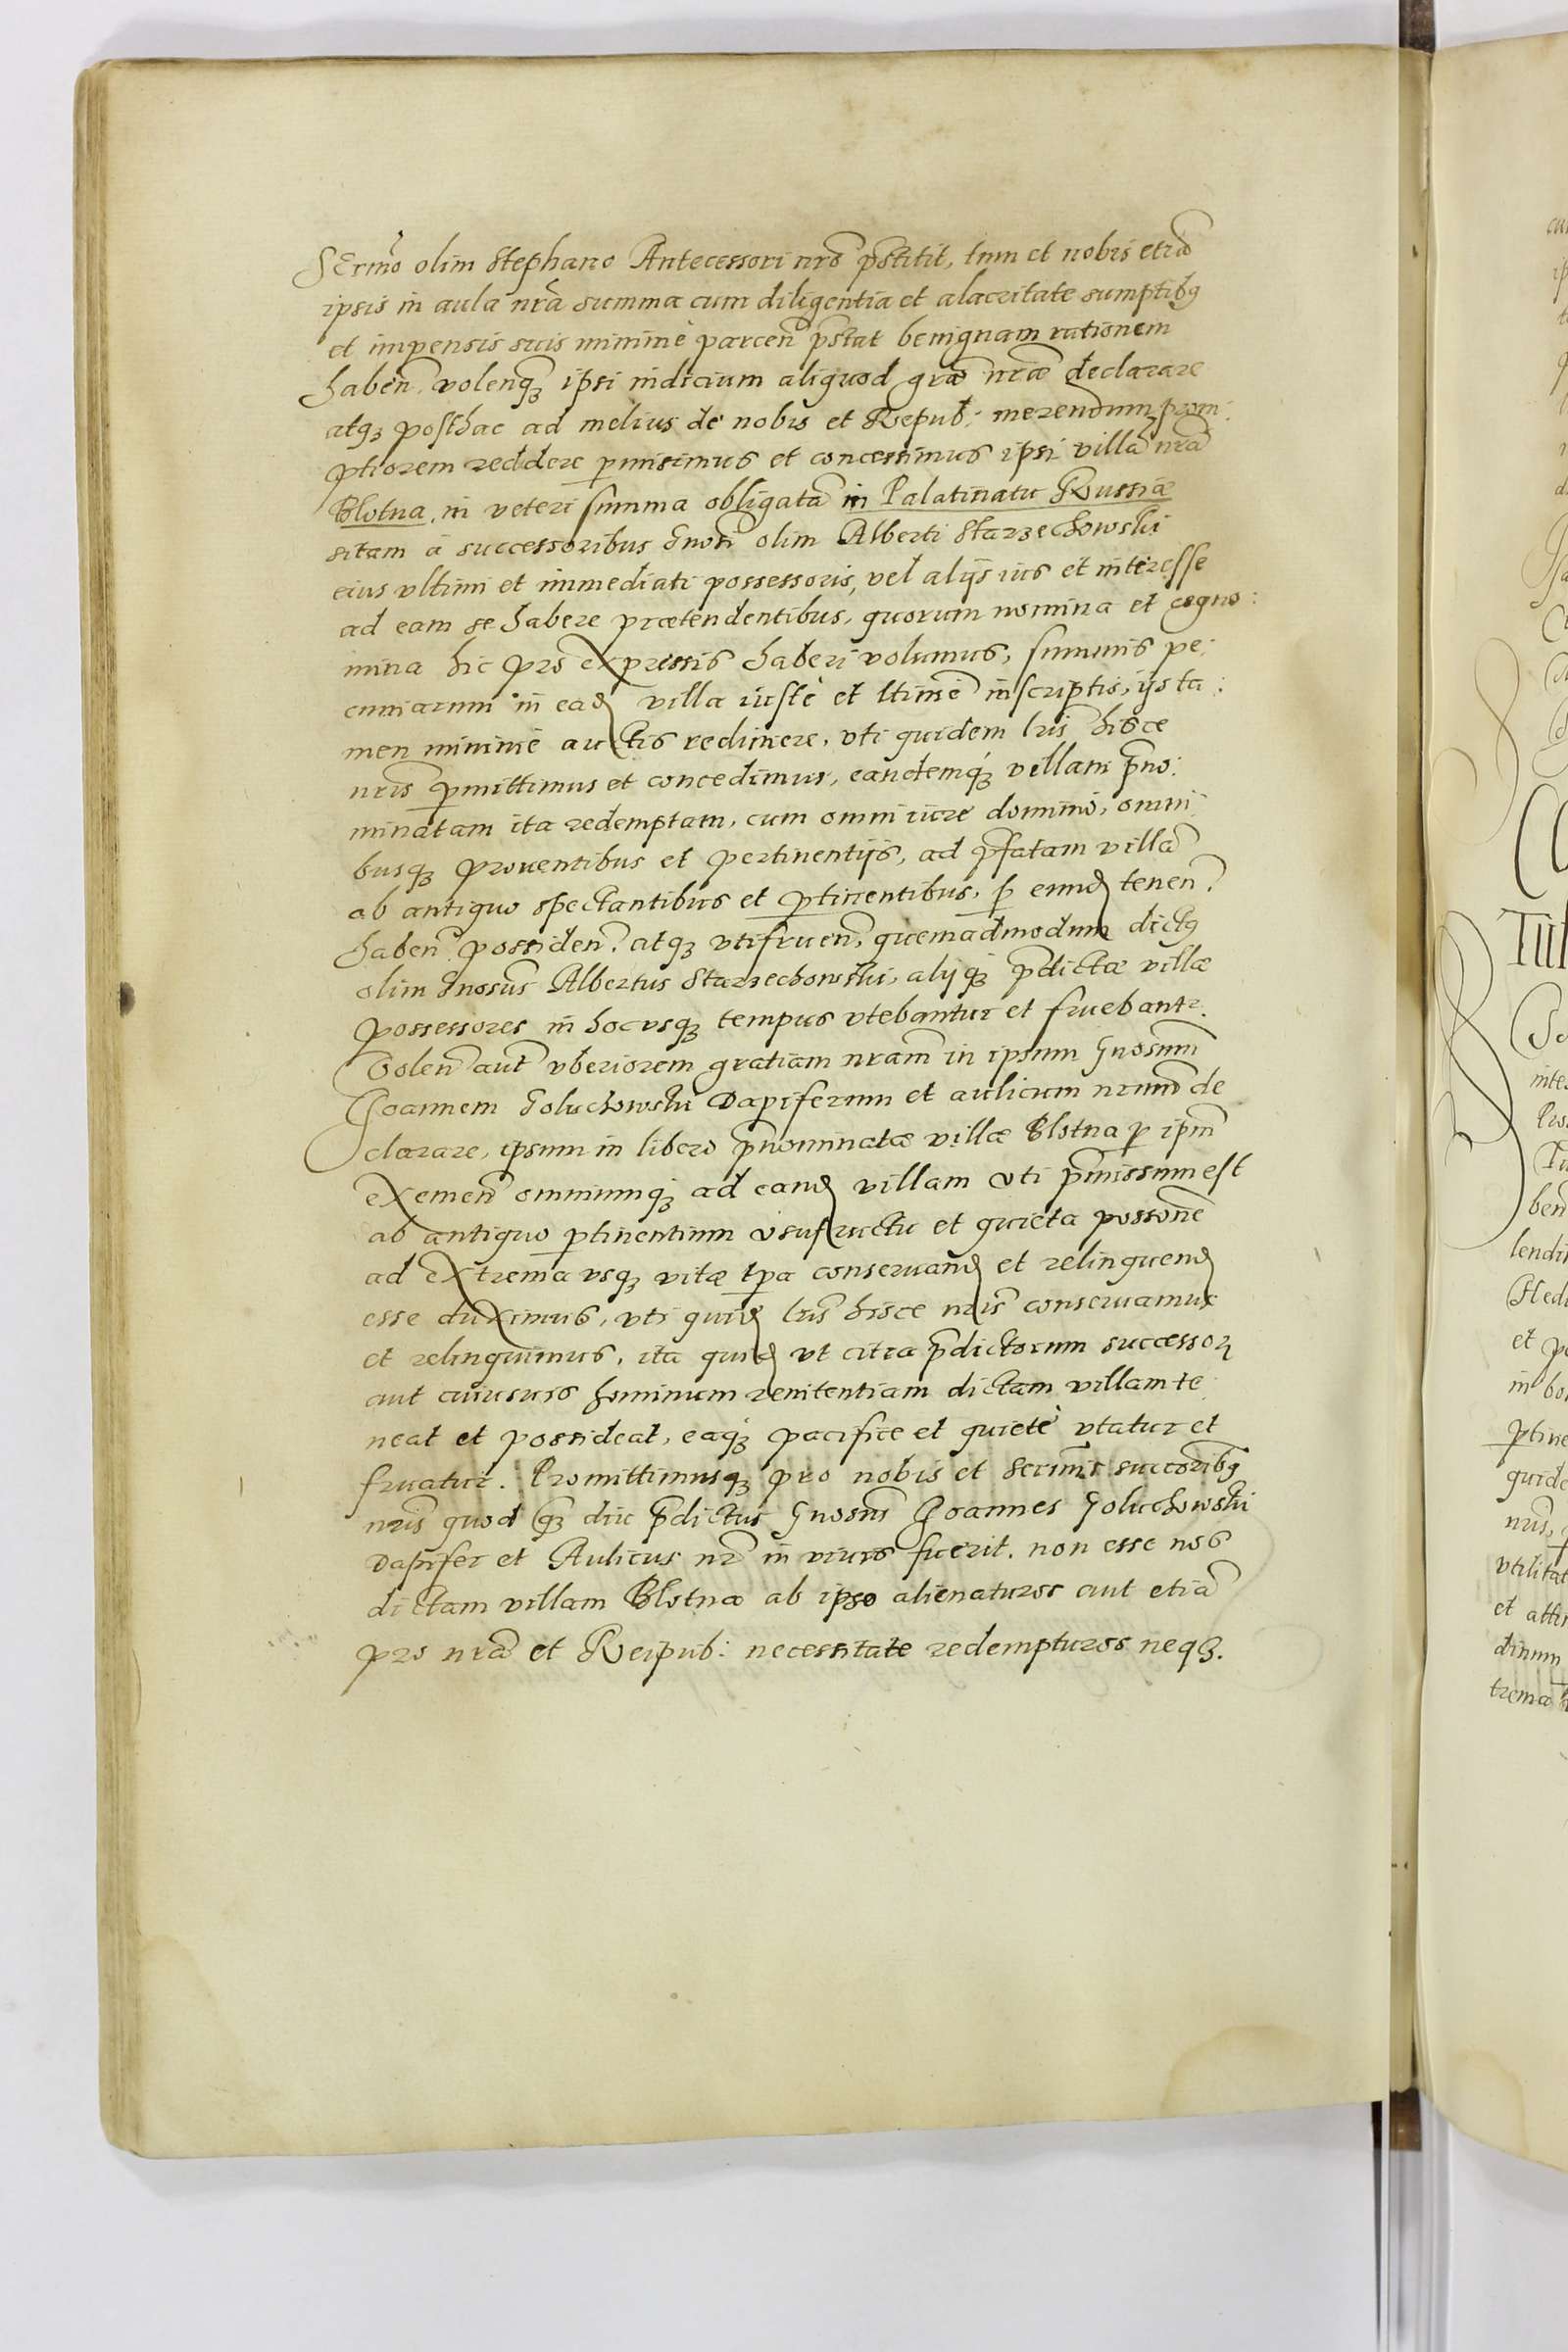 Sermo olim Stephano Antecessori nro pstitit, tum et nobis etia
ipsis in aula nra summa cum diligentia et alacritate sumptibq
et impensis suis minimè parcen pstat benignam rationem
haben. volenq; ipsi indicium aliquod græ nræ declarare
atq; posthac ad melius de nobis et Repub: merendum prom:
ptiorem reddere pmisimus et concessimus ipsi villa nra
Blotna, in veteri summa obligata in Palatinatu Russiæ
sitam à successoribus Gnosi olim Alberti Starzechowski
eius vltimi et immediati possessoris, vel alijs ius et interesse
ad eam se habere prætendentibus, quorum nomina et cogno:
mina hic pro expressis haberi volumus, summis pe:
cuniarum in ead villa iustè et ltimè inscriptis, ijs ta:
men minimè auctis redimere, vti quidem lris hisce
nris pmittimus et concedimus, eandemq; villam pno:
minatam ita redemptam, cum omni iure dominio, omni
busq; prouentibus et pertinentijs, ad pfatam villa
ab antiquo spectantibus et ptinentibus, p eund tenen.
haben. possiden. atq; vtifruen, quemadmodum dictq
olim Gnosus Albertus Starzechowski, alijq; pdictæ villæ
possessores in hocusq; tempus vtebantur et fruebantr.
Volen aut vberiorem gratiam nram in ipsum Gnosum
Joannem Goluchowski Dapiferum et aulicum nrum de
clarare, ipsum in libero pnominatæ villæ Blotna p ipm
exemen omniumq; ad eand villam vti pmissum est
ab antiquo ptinentium vsufructu et quieta possone
ad extrema vsq; vitæ tpa conseruand et relinquend
esse duximus, vti quid lris hisce nris conseruamus
et relinquimus, ita quid vt citra pdictorum successor
aut cuiusuis hominum renitentiam dictam villam te
neat et possideat, eaq; pacificè et quietè vtatur et
fruatur. Promittimusq; pro nobis et Sermis succoribq
nris quod q; diu pdictus Gnosus Joannes Goluchowski
Dapifer et Aulicus nr in viuis fuerit. non esse nos
dictam villam Blotna ab ipso alienaturos aut etia
pro nra et Reipub: necessitate redempturos neq3.